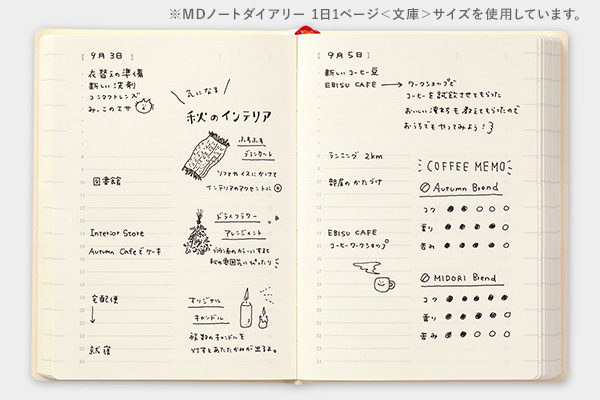 ※MDノートダイアリー 1日1ページ<文庫>サイズを使用しています。
[ 9月3日 ]
・衣替えの準備
・新しい洗剤
・コンタクトレンズ
・みーこのエサ
図書館
Interior Store
Autumn Cafeでケーキ
宅配便
新宿
気になる
秋のインテリア
ふわふわ
ブランケット
ソファやイスにかけて
インテリアのアクセントに
ドライフラワー
アレンジメント
ブラウン系のカラーにすると
秋の雰囲気にぴったり
オリジナル
キャンドル
複数のキャンドルを
灯すとあたたかみが出るよ。
[ 9月5日 ]
新しいコーヒー豆
EBISU CAFE → ワークショップで
コーヒーを試飲させてもらった
おいしい淹れ方も教えてもらったので
おうちでもやってみよう!
ランニング 2km
部屋のかたづけ
EBISU CAFE
コーヒーワークショップ
COFFEE MEMO
Autumn Blend
コク ●●○○○
香り ●●●●○
苦み ●●●○○
MIDORI Blend
コク ●●●●●
香り ●●●●●
苦み ●●○○○